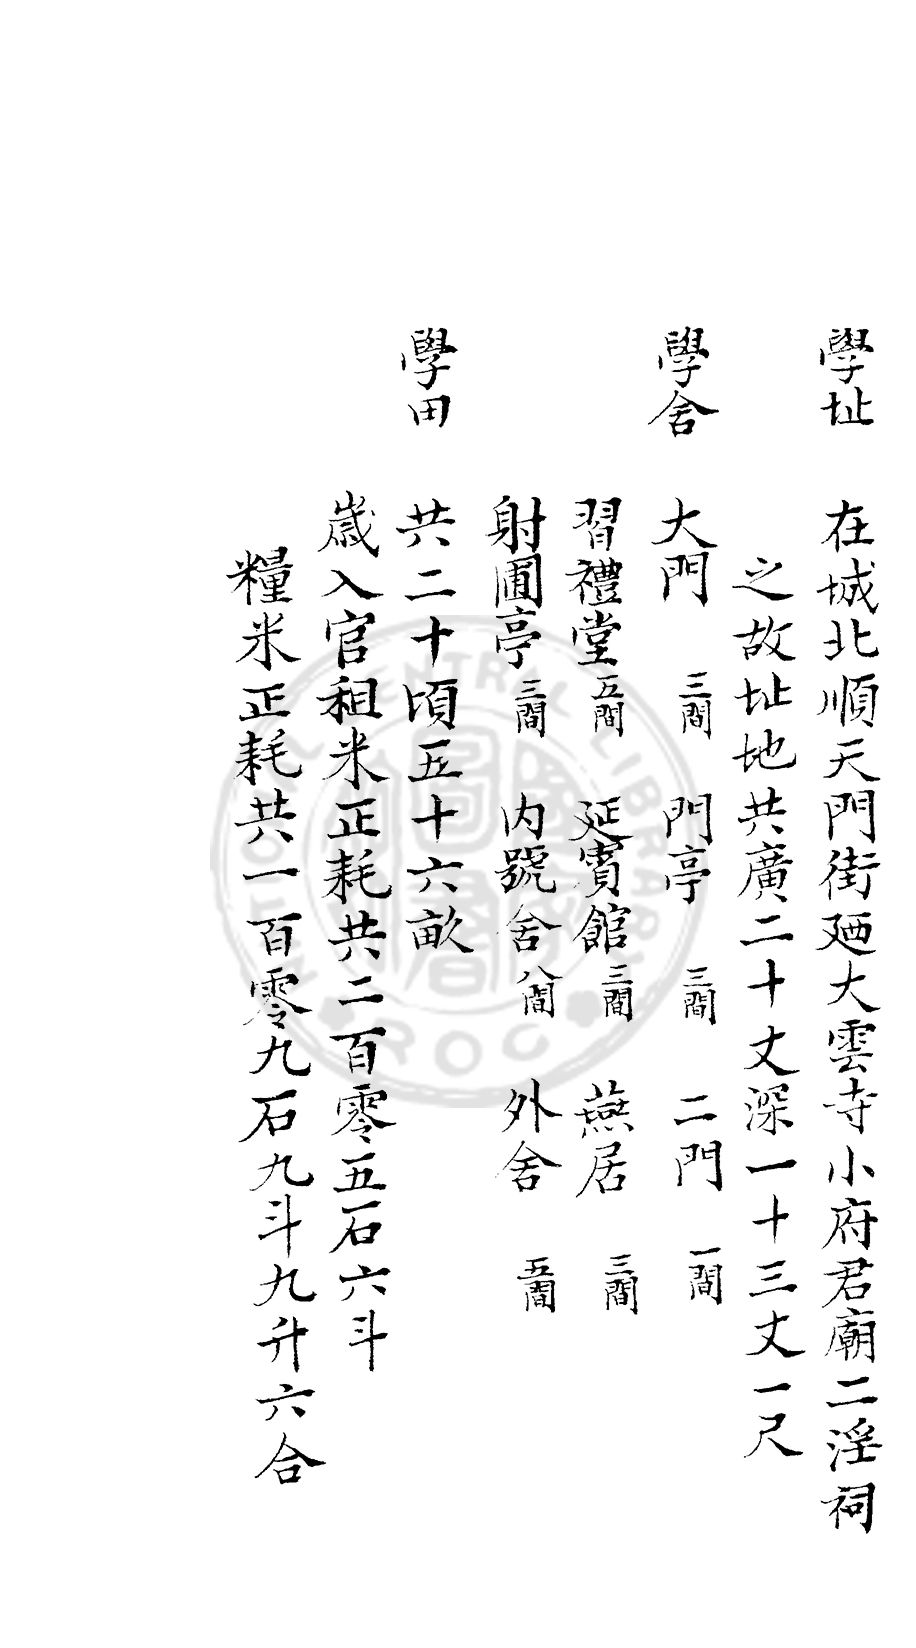 學址 在城北順天門街廼大雲寺小府君廟二淫祠
之故址地共廣二十丈深一十三丈一尺
學舍 大門三間 門亭三間 二門一間
習禮堂五間 延賓館三間 燕居三間
射圃亭三間 内號舍八間 外舍五間
學田 共二十頃五十六畝
歲入官租米正耗共二百零五石六斗
糧米正耗共一百零九石九斗九升六合
CENTRAL LIBRARY
ROC